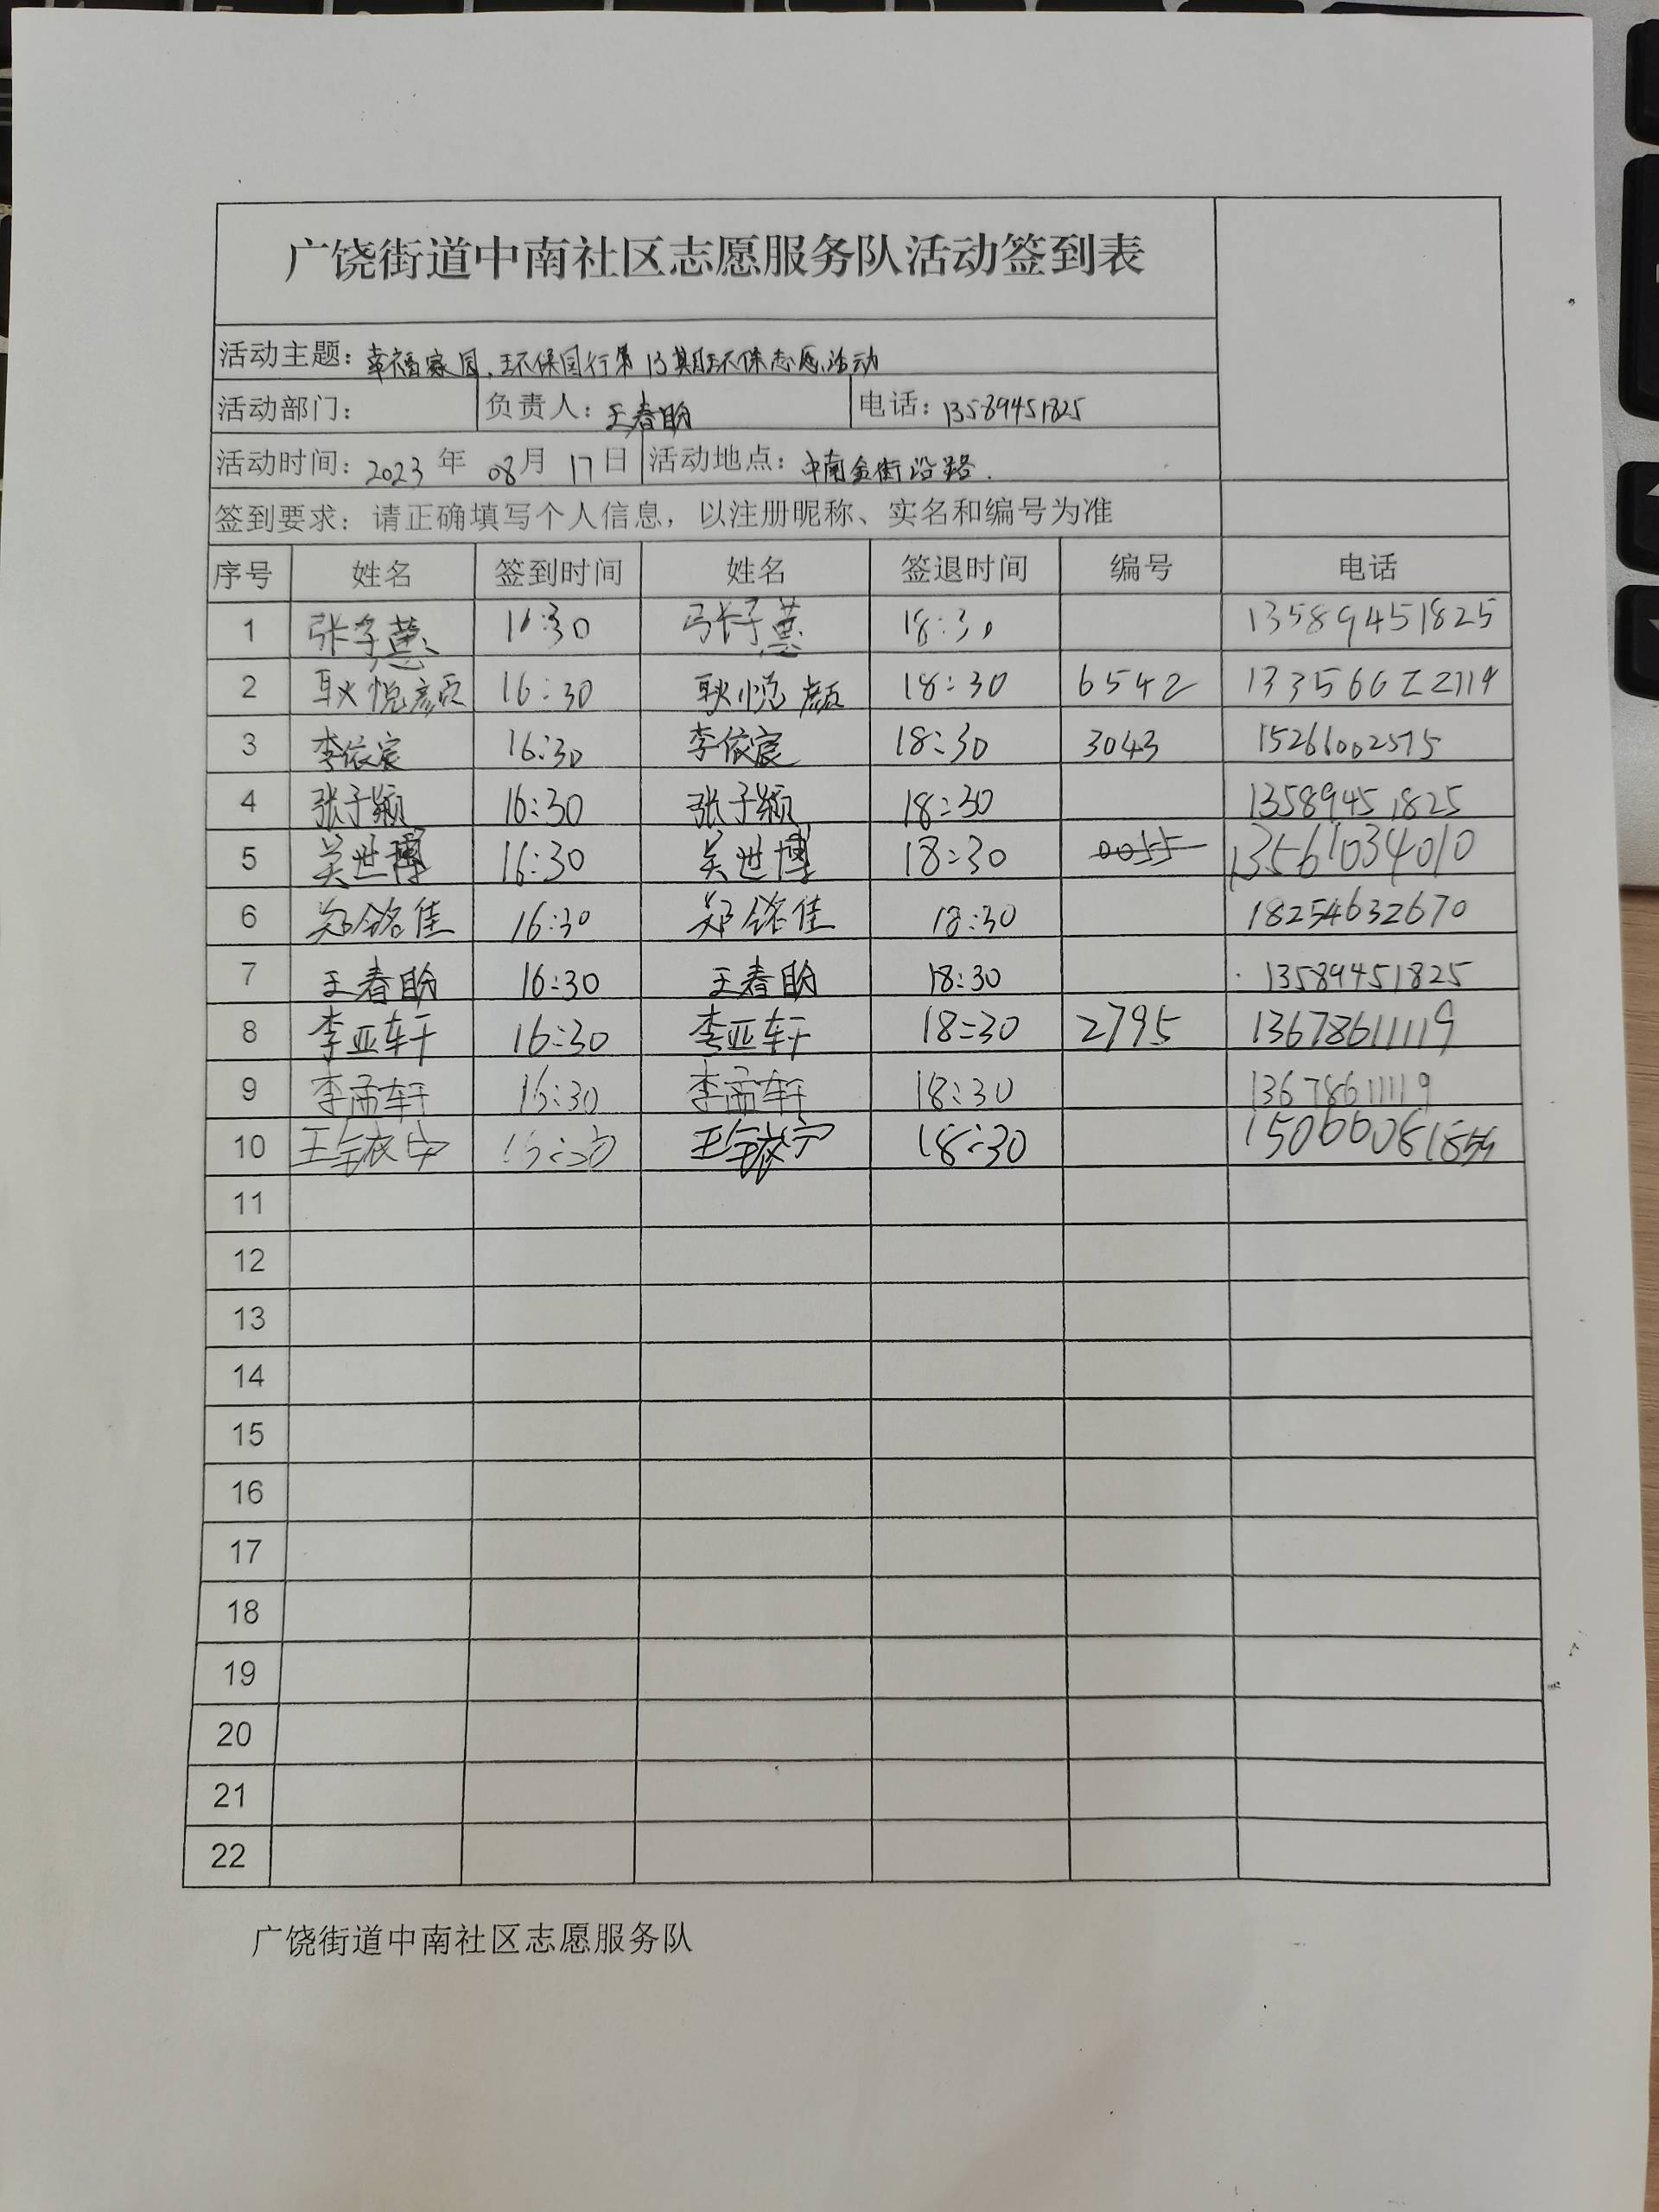 广饶街道中南社区志愿服务队活动签到表
活动主题：幸福家园，环保同行第13期环保志愿活动
活动部门： 负责人：王春盼 电话：13589451825
活动时间：2023年 08月 17日 活动地点：中南金街沿路.
签到要求：请正确填写个人信息，以注册昵称、实名和编号为准
序号 姓名 签到时间 姓名 签退时间 编号 电话
1 张子慧 16:30 张子慧 18:30 13589451825
2 耿悦颜 16:30 耿悦颜 18:30 6542
3 李依宸 16:30 李依宸 18:30 3043 15266002575
4 张子颖 16:30 张子颖 18:30 13589451825
5 吴世博 16:30 吴世博 18:30 0055 13561034010
6 郑铭佳 16:30 郑铭佳 18:30 18254632670
7 王春盼 16:30 王春盼 18:30 13589451825
8 李亚轩 16:30 李亚轩 18:30 2795 13678611119
9 李孟轩 16:30 李孟轩 18:30 13678611119
10 18:30
11
12
13
14
15
16
17
18
19
20
21
22
广饶街道中南社区志愿服务队